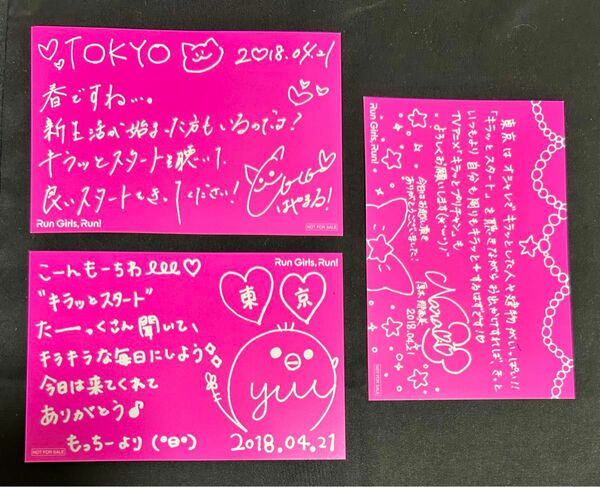 TOKYO 2018.04.21
春ですね…。
新生活が始まった方もいるのでは?
キラッとスタートを聴いて
良いスタートをきってください!
はやまる!
Run Girls, Run!
NOT FOR SALE
Run Girls, Run!
こーんもーちわ
東京
"キラッとスタート"
たーーっくさん聞いて、
キラキラな毎日にしよう
今日は来てくれて
ありがとう♪
もっちーより
yuu
2018.04.21
NOT FOR SALE
Run Girls, Run!
東京はオシャレでキラッとした人や建物がいっぱい!!
「キラッとスタート」を聴きながらお出かけすれば、きっと
いつもより自分も周りもキラッとするはずです♡
TVアニメ「キラッとプリ☆チャン」も
よろしくお願いします
今日はお越し頂き
ありがとうございました!
2018.04.21
NOT FOR SALE